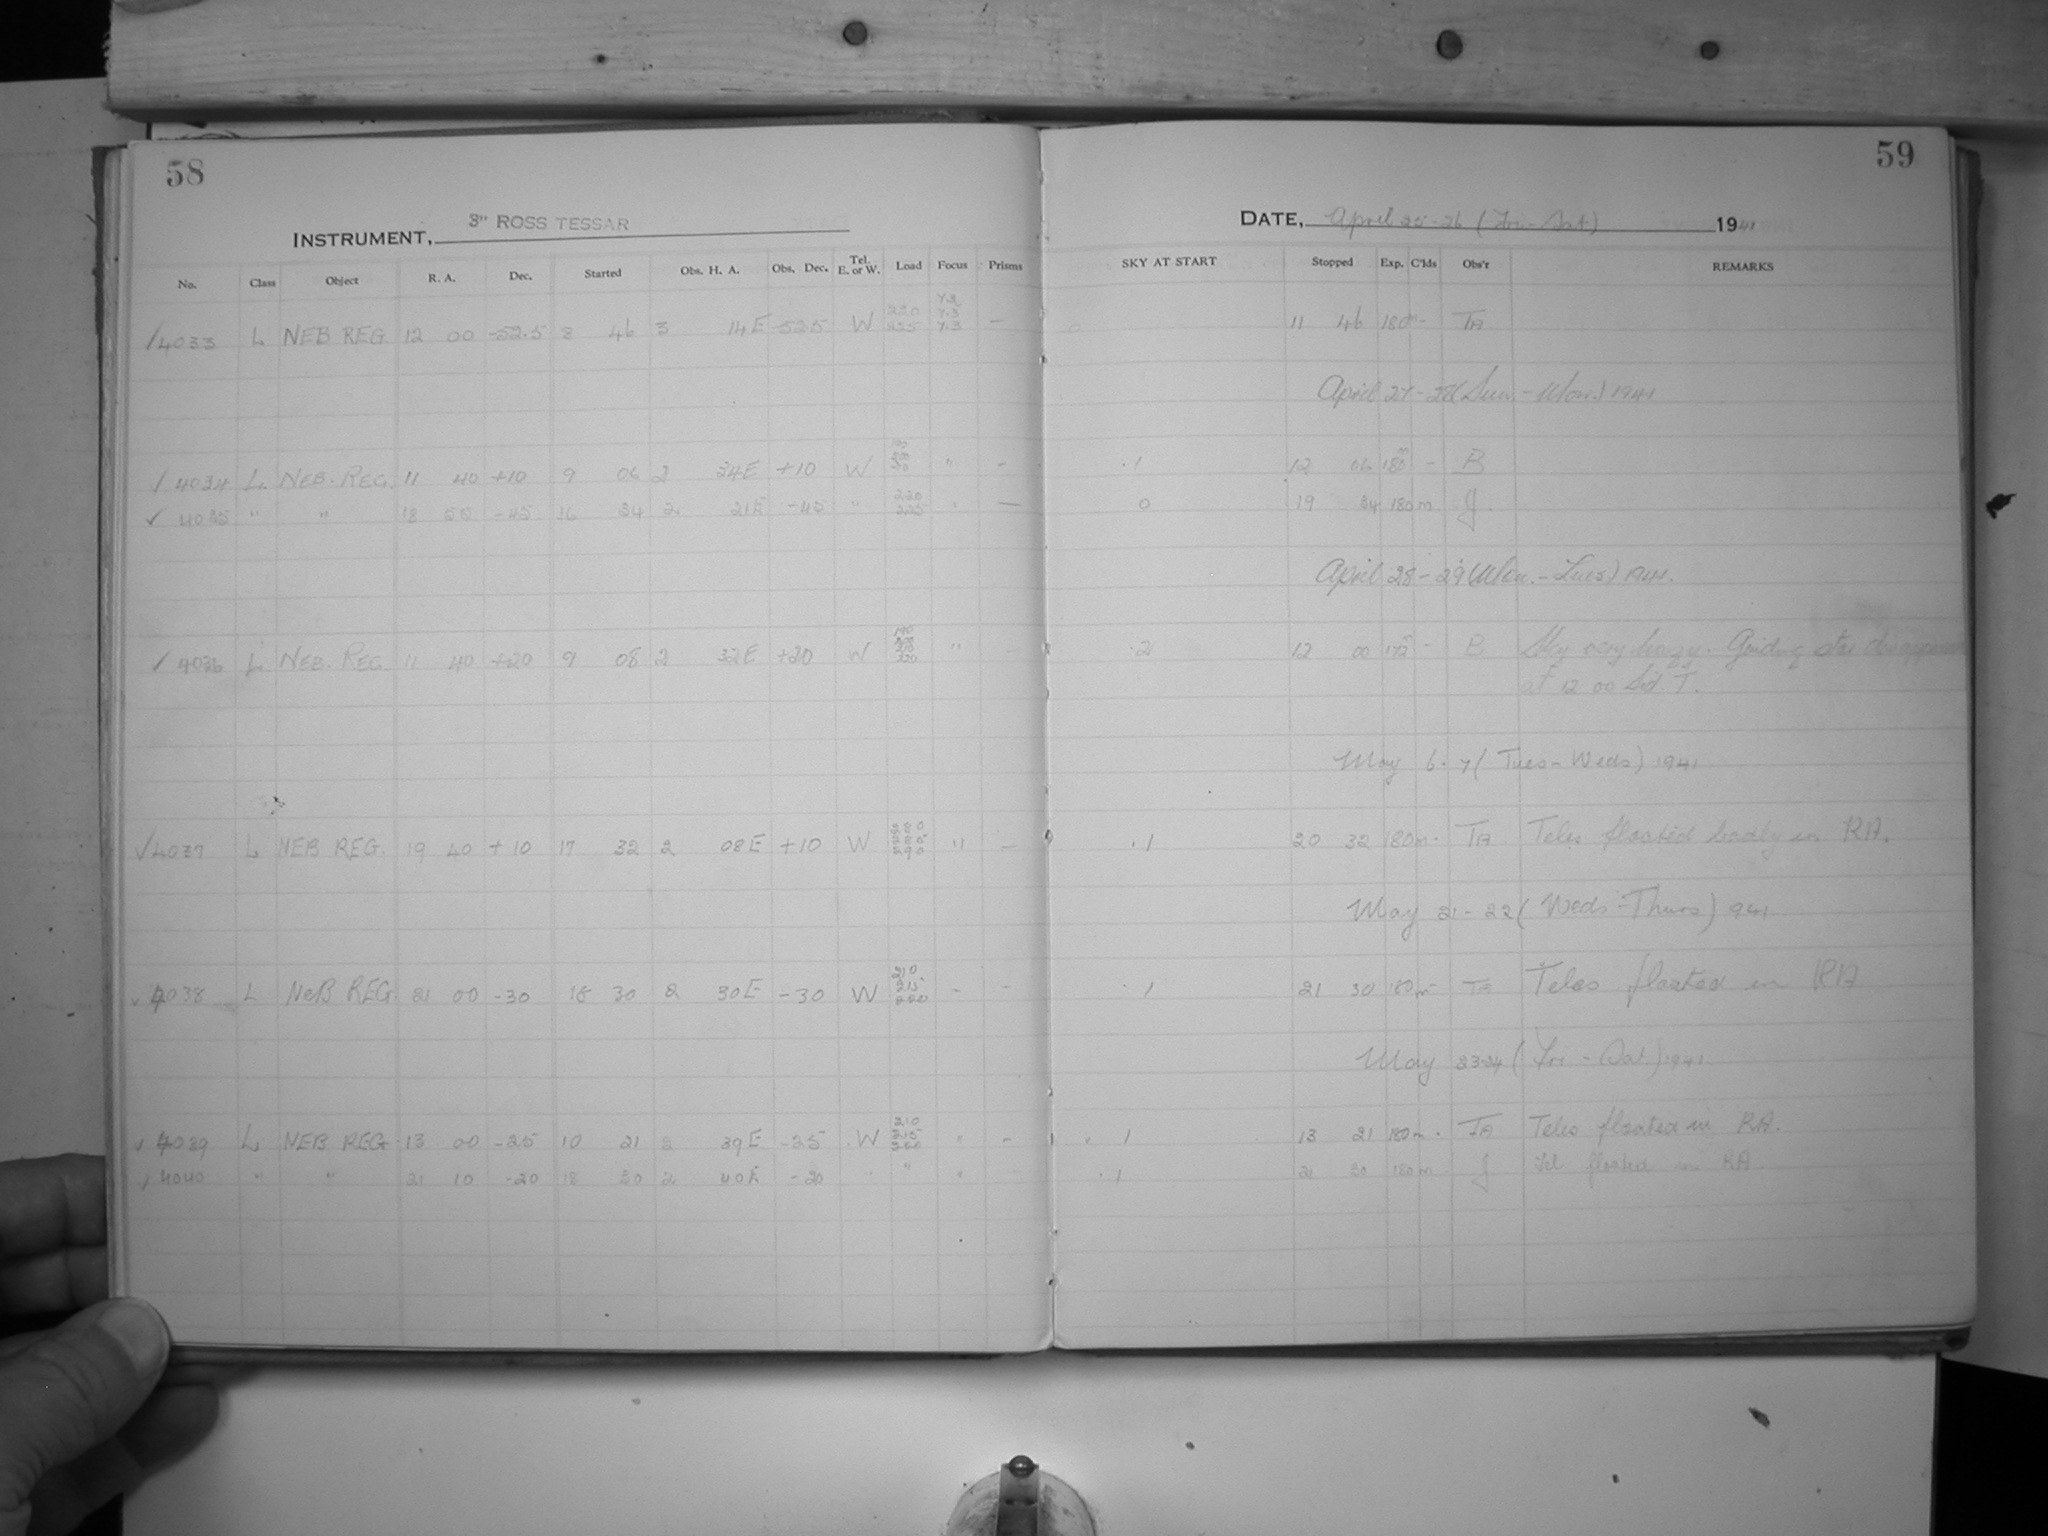 58
59
3" ROSS TESSAR
INSTRUMENT,
DATE, April 25-26 (Fri-Sat) 1941
No. Class Object R. A. Dec. Started Obs. H. A. Obs. Dec. Tel. E. or W. Load Focus Prisms SKY AT START Stopped Exp. C'lds Obs'r REMARKS
4033 L NEB REG 12 00 -52.5 8 46 3 14E -52.5 W 220 225 7.3 7.3 — 0 11 46 180m - TA
April 27-28 (Sun-Mon.) 1941
4034 L NEB. REG. 11 40 +10 9 06 2 34E +10 W " - .1 12 06 180m - B
4035 " " 18 55 -45 16 34 2 21E -45 " 220 225 " — 0 19 34 180m J.
April 28-29 (Mon.-Tues) 1941.
4036 L NEB. REG. 11 40 +20 9 08 2 32E +20 W 190 220 " - .2 12 00 172m - B Sky very hazy. Guiding star disappeared
at 12 00 Sid T.
May 6-7 (Tues-Weds) 1941
4037 L NEB REG. 19 40 +10 17 32 2 08E +10 W " - .1 20 32 180m - TA Teles floated badly in RA.
May 21-22 (Weds-Thurs) 1941
4038 L NEB REG. 21 00 -30 18 30 2 30E -30 W 210 215 220 - - .1 21 30 180m - TA Teles floated in RA
May 23-24 (Fri-Sat.) 1941
4039 L NEB REG 13 00 -25 10 21 2 39E -25 W 210 215 " - .1 13 21 180m - TA Teles floated in RA.
4040 " " 21 10 -20 18 30 2 40E -20 " " .1 21 30 180m J Tel floated in RA.